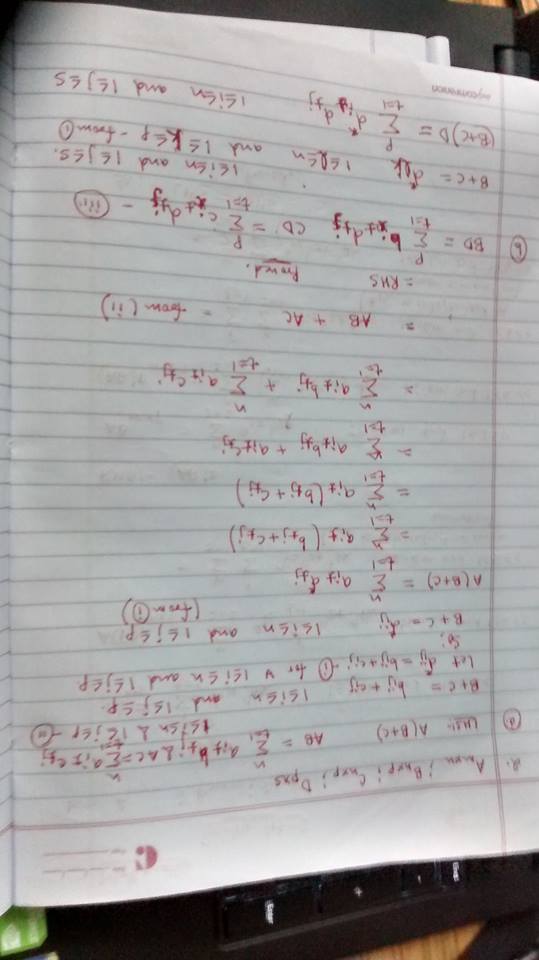 2. A_{mxn} ; B_{nxp} ; C_{nxp} ; D_{pxs}
(a) LHS: A(B+C) AB = \sum_{t=1}^{n} a_{it} b_{tj} & AC = \sum_{t=1}^{n} a_{it} c_{tj}
1≤i≤n & 1≤j≤p - (ii)
B+C = b_{ij} + c_{ij} 1≤i≤n and 1≤j≤p.
Let d_{ij} = b_{ij} + c_{ij} - (i) for ∀ 1≤i≤n and 1≤j≤p
So,
B+C = d_{ij} 1≤i≤n and 1≤j≤p
(from (i))
A(B+C) = \sum_{t=1}^{n} a_{it} d_{tj}
= \sum_{t=1}^{n} a_{it} (b_{tj} + c_{tj})
= \sum_{t=1}^{n} a_{it} (b_{tj} + c_{tj})
= \sum_{t=1}^{n} a_{it} b_{tj} + a_{it} c_{tj}
= \sum_{t=1}^{n} a_{it} b_{tj} + \sum_{t=1}^{n} a_{it} c_{tj}
= AB + AC - from (ii)
= RHS Proved.
(b) BD = \sum_{t=1}^{p} b_{it} d_{tj} CD = \sum_{t=1}^{p} c_{it} d_{tj} - (iii)
1≤i≤n and 1≤j≤s.
B+C = d_{lk} 1≤l≤n and 1≤k≤p - from (i)
(B+C)D = \sum_{t=1}^{p} d_{it} d_{tj} 1≤i≤n and 1≤j≤s
mycompanion
Enter
+
Enter